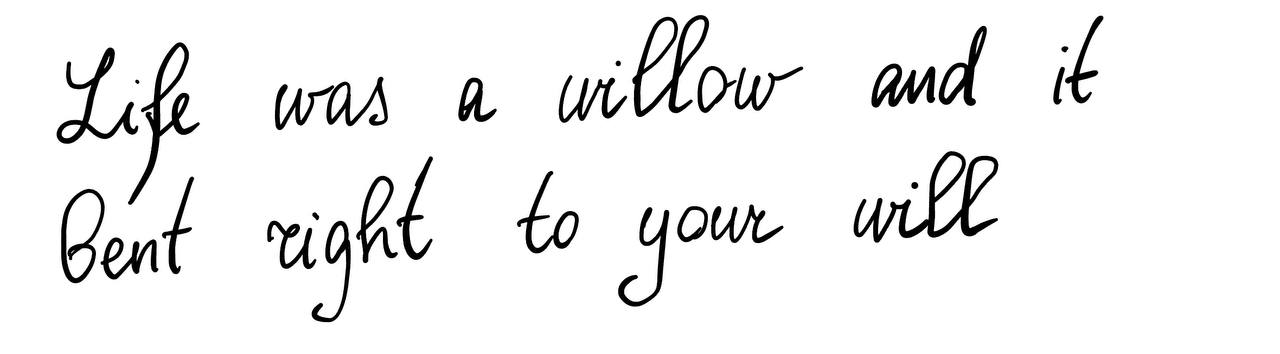 Life was a willow and it
bent right to your will